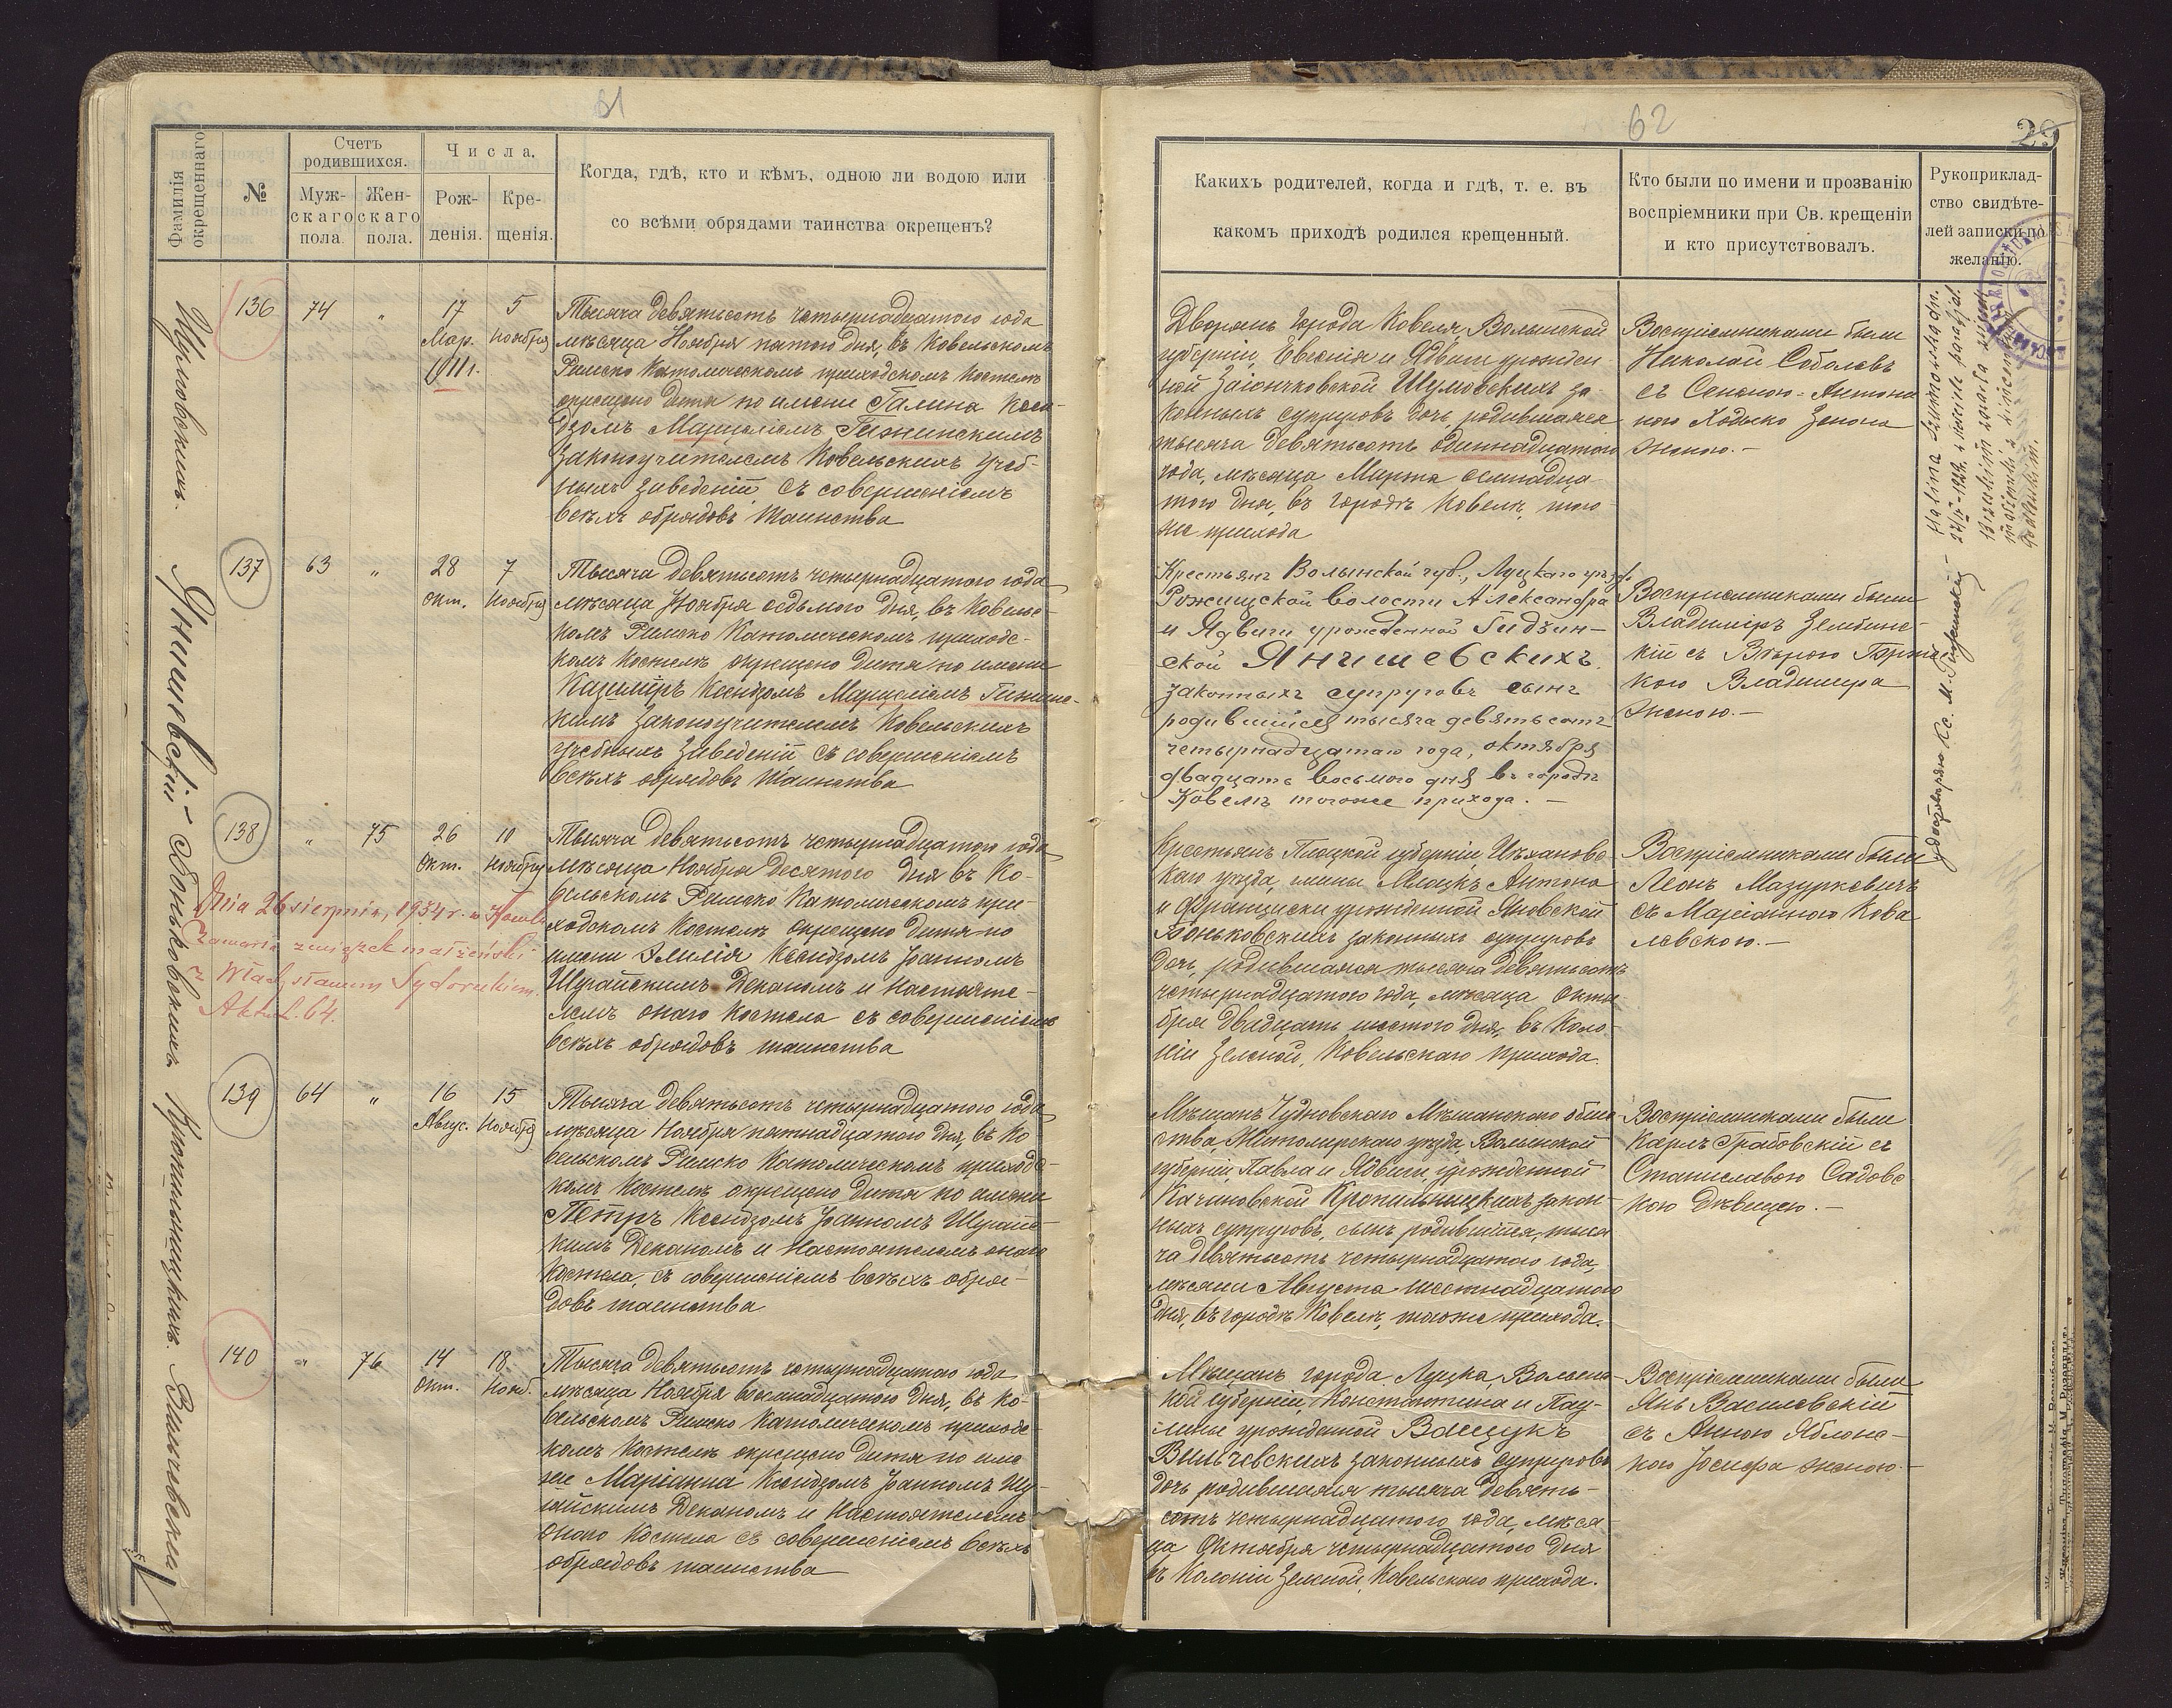 61
Фамилія окрещеннаго
№
Счетъ родившихся.
Мужскаго пола.
Женскаго пола.
Числа.
Рожденія.
Крещенія.
Когда, гдѣ, кто и кѣмъ, одною ли водою или
со всѣми обрядами таинства окрещенъ?
136
74
"
17
Мар.
911 г.
5
Ноября
Тысяча девятьсотъ четырнадцатого года
мѣсяца Ноября пятого дня, въ Ковельскомъ
Римско Католическомъ приходскомъ Костелѣ
окрещено дитя по имени Галина Ксен-
дзомъ Марцеліемъ Гижинскимъ
Законоучителемъ Ковельскихъ учеб-
ныхъ заведеній, съ совершеніемъ
всѣхъ обрядовъ таинства
Янишевскій
137
63
"
28
Окт.
7
Ноября
Тысяча девятьсотъ четырнадцатого года
мѣсяца Ноября седьмого дня, въ Ковельс-
комъ Римско Католическомъ приходс-
комъ Костелѣ окрещено дитя по имени
Казиміръ Ксендзомъ Марцеліемъ Гижинс-
кимъ Законоучителемъ Ковельскихъ
учебныхъ заведеній съ совершеніемъ
всѣхъ обрядовъ таинства
138
"
75
26
Окт.
10
Ноября
Тысяча девятьсотъ четырнадцатого года
мѣсяца Ноября десятого дня въ Ко-
вельскомъ Римско Католическомъ при-
ходскомъ Костелѣ окрещено дитя по
имени Эмилія Ксендзомъ Іоанномъ
Шурайскимъ Деканомъ и Настояте-
лемъ онаго Костела съ совершеніемъ
всѣхъ обрядовъ таинства
Dnia 26 sierpnia, 1934 r. w Kowlu
zawarła związek małżeński
z Władysławem Sydorukiem.
Akt L. 64.
139
64
"
16
Авгус.
15
Ноября
Тысяча девятьсотъ четырнадцатого года
мѣсяца Ноября пятнадцатого дня, въ Ко
вельскомъ Римско Католическомъ приходс-
комъ Костелѣ окрещено дитя по имени
Петръ Ксендзомъ Іоанномъ Шурайс-
кимъ Деканомъ и Настоятелемъ онаго
Костела, съ совершеніемъ всѣхъ обря-
довъ таинства
140
"
76
14
Окт.
18
Нояб.
Тысяча девятьсотъ четырнадцатого года
мѣсяца Ноября восемнадцатого дня, въ Ко-
вельскомъ Римско Католическомъ приходс-
комъ Костелѣ окрещено дитя по име
ни Маріанна Ксендзомъ Іоанномъ Шу-
райскимъ Деканомъ и Настоятелемъ
онаго Костела съ совершеніемъ всѣхъ
обрядовъ таинства
62
29
Какихъ родителей, когда и гдѣ, т. е. въ
какомъ приходѣ родился крещенный.
Кто были по имени и прозванію
воспріемники при Св. крещеніи
и кто присутствовалъ.
Рукоприклад-
ство свидѣте-
лей записки по
желанію.
Дворянъ города Ковеля, Волынской
губерніи, Евгенія и Ядвиги урожден
ной Заіончковской Шумовскихъ за-
конныхъ супруговъ дочь, родившаяся
тысяча девятьсотъ одиннадцатого
года, мѣсяца Марта семнадца-
того дня, въ городѣ Ковелѣ, того-
же прихода
Воспріемниками были
Николай Соболевъ
съ
Ходзько Зенона
женою.-
Крестьянъ Волынской губ., Луцкаго уѣзд.
Рожищской волости Александра
и Ядвиги урожденной Гидзин-
ской Янишевскихъ
законныхъ супруговъ сынъ
родившійся тысяча девятьсотъ
четырнадцатаго года, октября
двадцать восьмого дня въ городѣ
Ковелѣ тогоже прихода. -
Воспріемниками были
Владиміръ Зембинс-
кій съ Вѣрою
кою Владимира
женою.-
Крестьянъ Плоцкой губерніи Цѣхановс-
каго уѣзда, гмины Млоцкъ Антона
и Франциски урожденной Яновской
Боньковскихъ законныхъ супруговъ
дочь, родившаяся тысяча девятьсотъ
четырнадцатого года, мѣсяца Октя-
бря двадцать шестого дня, въ Коло-
ніи Зеленой, Ковельскаго прихода.
Воспріемниками были
Леонъ Мазуркевичъ
съ Маріанною Кова
левскою.-
Мѣщанъ Чудновскаго Мѣщанскаго обще
ства, Житомирскаго уѣзда, Волынской
губерніи, Павла и Ядвиги, урожденной
Качиновской Кропильницкихъ закон-
ныхъ супруговъ, сынъ родившійся, тыся
ча девятьсотъ четырнадцатого года,
мѣсяца Августа шестнадцатого
дня, въ городѣ Ковелѣ, тогоже прихода.
Воспріемниками были
Карлъ Грабовскій съ
Станиславою Садовс
кою Дѣвицею.-
Мѣщанъ города Луцка, Волынс-
кой губерніи, Константина и Пау-
лины урожденной Ващукъ
Вильчевскихъ законныхъ супруговъ
дочь родившаяся тысяча девять-
сотъ четырнадцатого года, мѣся-
ца Октября четырнадцатого дня
въ Колоніи Зеленой, Ковельскаго прихода.
Воспріемниками были
Янъ Василевскій
съ Анною Яблонс-
кою Іосифа женою.-
удостовѣряю Кс. М. Гижинскій